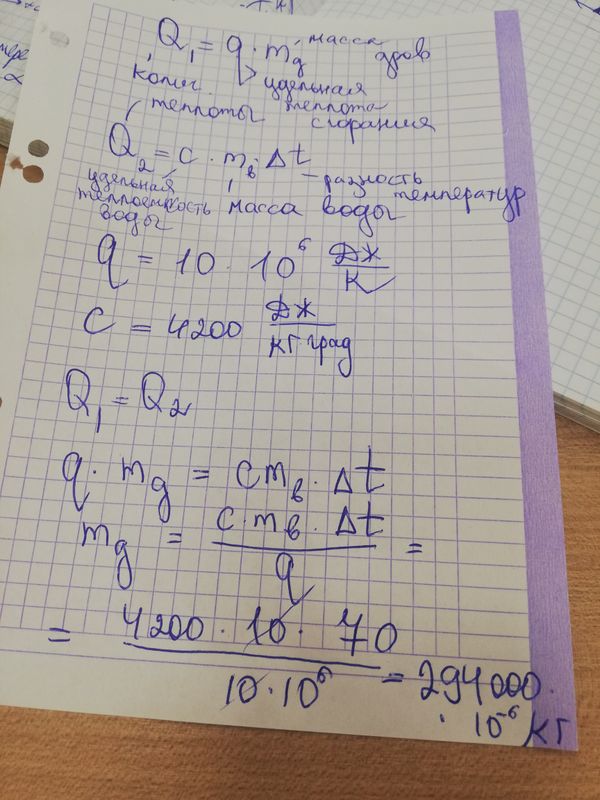 Q₁ = q · m_д масса дров
колич. теплоты удельная теплота сгорания
Q₂ = c · m_в · Δt – разность температур
удельная теплоемкость воды масса воды
q = 10 · 10⁶ Дж/К
c = 4200 Дж/кг·град
Q₁ = Q₂
q · m_д = cm_в · Δt
m_д = c · m_в · Δt / q =
= 4200 · 10 · 70 / 10 · 10⁶ = 294000 ·
· 10⁻⁶ кг